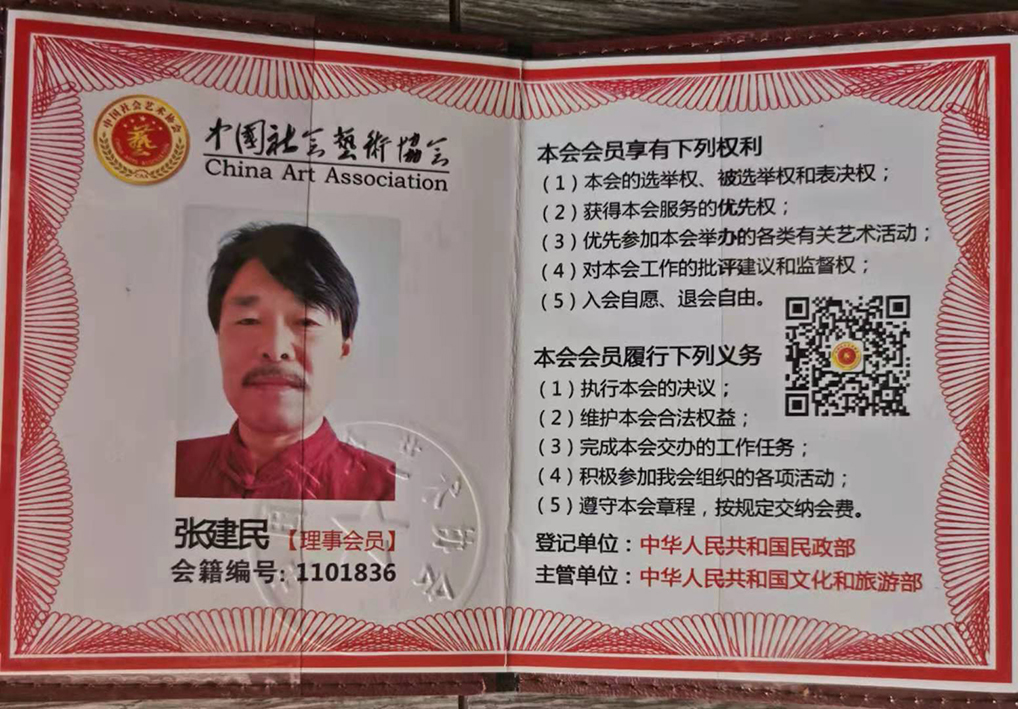 中国社会艺术协会
藝
中國社会藝術協会
China Art Association
张建民【理事会员】
会籍编号: 1101836
本会会员享有下列权利
(1)本会的选举权、被选举权和表决权；
(2)获得本会服务的优先权；
(3)优先参加本会举办的各类有关艺术活动；
(4)对本会工作的批评建议和监督权；
(5)入会自愿、退会自由。
本会会员履行下列义务
(1)执行本会的决议；
(2)维护本会合法权益；
(3)完成本会交办的工作任务；
(4)积极参加我会组织的各项活动；
(5)遵守本会章程，按规定交纳会费。
登记单位：中华人民共和国民政部
主管单位：中华人民共和国文化和旅游部